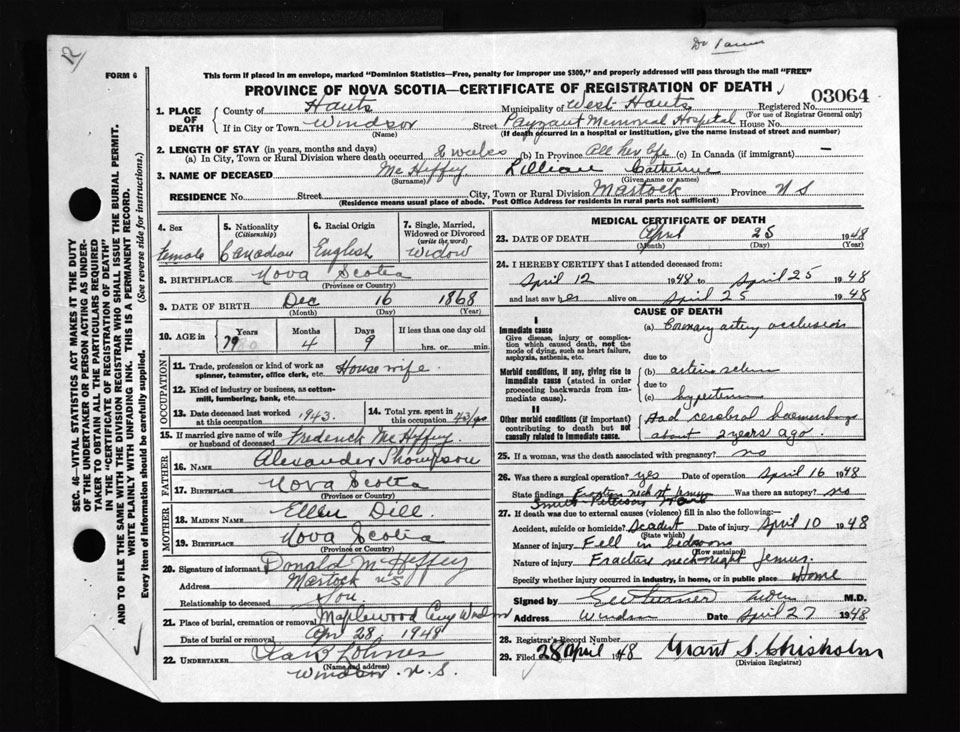 R
FORM 6
This form if placed in an envelope, marked "Dominion Statistics—Free, penalty for improper use $300," and properly addressed will pass through the mail "FREE"
PROVINCE OF NOVA SCOTIA—CERTIFICATE OF REGISTRATION OF DEATH
03064
1. PLACE OF DEATH
County of Hants
Municipality of West Hants
Registered No.
(For use of Registrar General only)
If in City or Town Windsor
(Name)
Street Payzant Memorial Hospital House No.
(If death occurred in a hospital or institution, give the name instead of street and number)
2. LENGTH OF STAY (in years, months and days)
(a) In City, Town or Rural Division where death occurred 2 weeks (b) In Province All her life (c) In Canada (if immigrant) —
3. NAME OF DECEASED McHeffey Lillian
(Surname) (Given name or names)
RESIDENCE No. Street City, Town or Rural Division Martock Province N S
(Residence means usual place of abode. Post Office Address for residents in rural parts not sufficient)
4. Sex
Female
5. Nationality
(Citizenship)
Canadian
6. Racial Origin
English
7. Single, Married, Widowed or Divorced
(write the word)
Widow
8. BIRTHPLACE Nova Scotia
(Province or Country)
9. DATE OF BIRTH Dec 16 1868
(Month) (Day) (Year)
10. AGE in
Years Months Days If less than one day old
79 4 9 hrs. or min.
OCCUPATION
11. Trade, profession or kind of work as spinner, teamster, office clerk, etc. House wife
12. Kind of industry or business, as cotton-mill, lumbering, bank, etc.
13. Date deceased last worked at this occupation 1943.
14. Total yrs. spent in this occupation 43 yrs
15. If married give name of wife or husband of deceased Frederick McHeffey
FATHER
16. NAME Alexander Thompson
17. BIRTHPLACE Nova Scotia
(Province or Country)
MOTHER
18. MAIDEN NAME Ellen Dill.
19. BIRTHPLACE Nova Scotia
(Province or Country)
20. Signature of informant Donald McHeffey
Address Martock N S
Relationship to deceased Son.
21. Place of burial, cremation or removal Maplewood Windsor
Date of burial or removal Apr 28, 1948
22. UNDERTAKER
(Name and address)
Windsor. N. S.
MEDICAL CERTIFICATE OF DEATH
23. DATE OF DEATH April 25 1948
(Month) (Day) (Year)
24. I HEREBY CERTIFY that I attended deceased from
April 12 1948 to April 25 1948
and last saw her alive on April 25 1948
CAUSE OF DEATH
I
Immediate cause
Give disease, injury or complication which caused death, not the mode of dying, such as heart failure, asphyxia, asthenia, etc.
(a) Coronary artery occlusion
due to
Morbid conditions, if any, giving rise to immediate cause (stated in order proceeding backwards from immediate cause).
(b)
due to
(c)
II
Other morbid conditions (if important) contributing to death but not causally related to immediate cause.
Had cerebral haemorrhage
about 2 years ago.
25. If a woman, was the death associated with pregnancy? no
26. Was there a surgical operation? yes Date of operation April 16 1948
State findings Fracture neck of femur Was there an autopsy? no
Smith Petersen
27. If death was due to external causes (violence) fill in also the following:—
Accident, suicide or homicide? Accident Date of injury April 10 1948
(State which)
Manner of injury Fell in bedroom
(How sustained)
Nature of injury Fracture neck right femur.
Specify whether injury occurred in industry, in home, or in public place Home
Signed by M.D.
Address Windsor Date April 27 1948
28. Registrar's Record Number
29. Filed 28 April 1948 Grant S. Chisholm
(Division Registrar)
SEC. 46—VITAL STATISTICS ACT MAKES IT THE DUTY
OF THE UNDERTAKER OR PERSON ACTING AS UNDER-
TAKER TO OBTAIN ALL THE PARTICULARS REQUIRED
IN THE "CERTIFICATE OF REGISTRATION OF DEATH"
AND TO FILE THE SAME WITH THE DIVISION REGISTRAR WHO SHALL ISSUE THE BURIAL PERMIT.
WRITE PLAINLY WITH UNFADING INK. THIS IS A PERMANENT RECORD.
Every item of information should be carefully supplied. (See reverse side for instructions.)